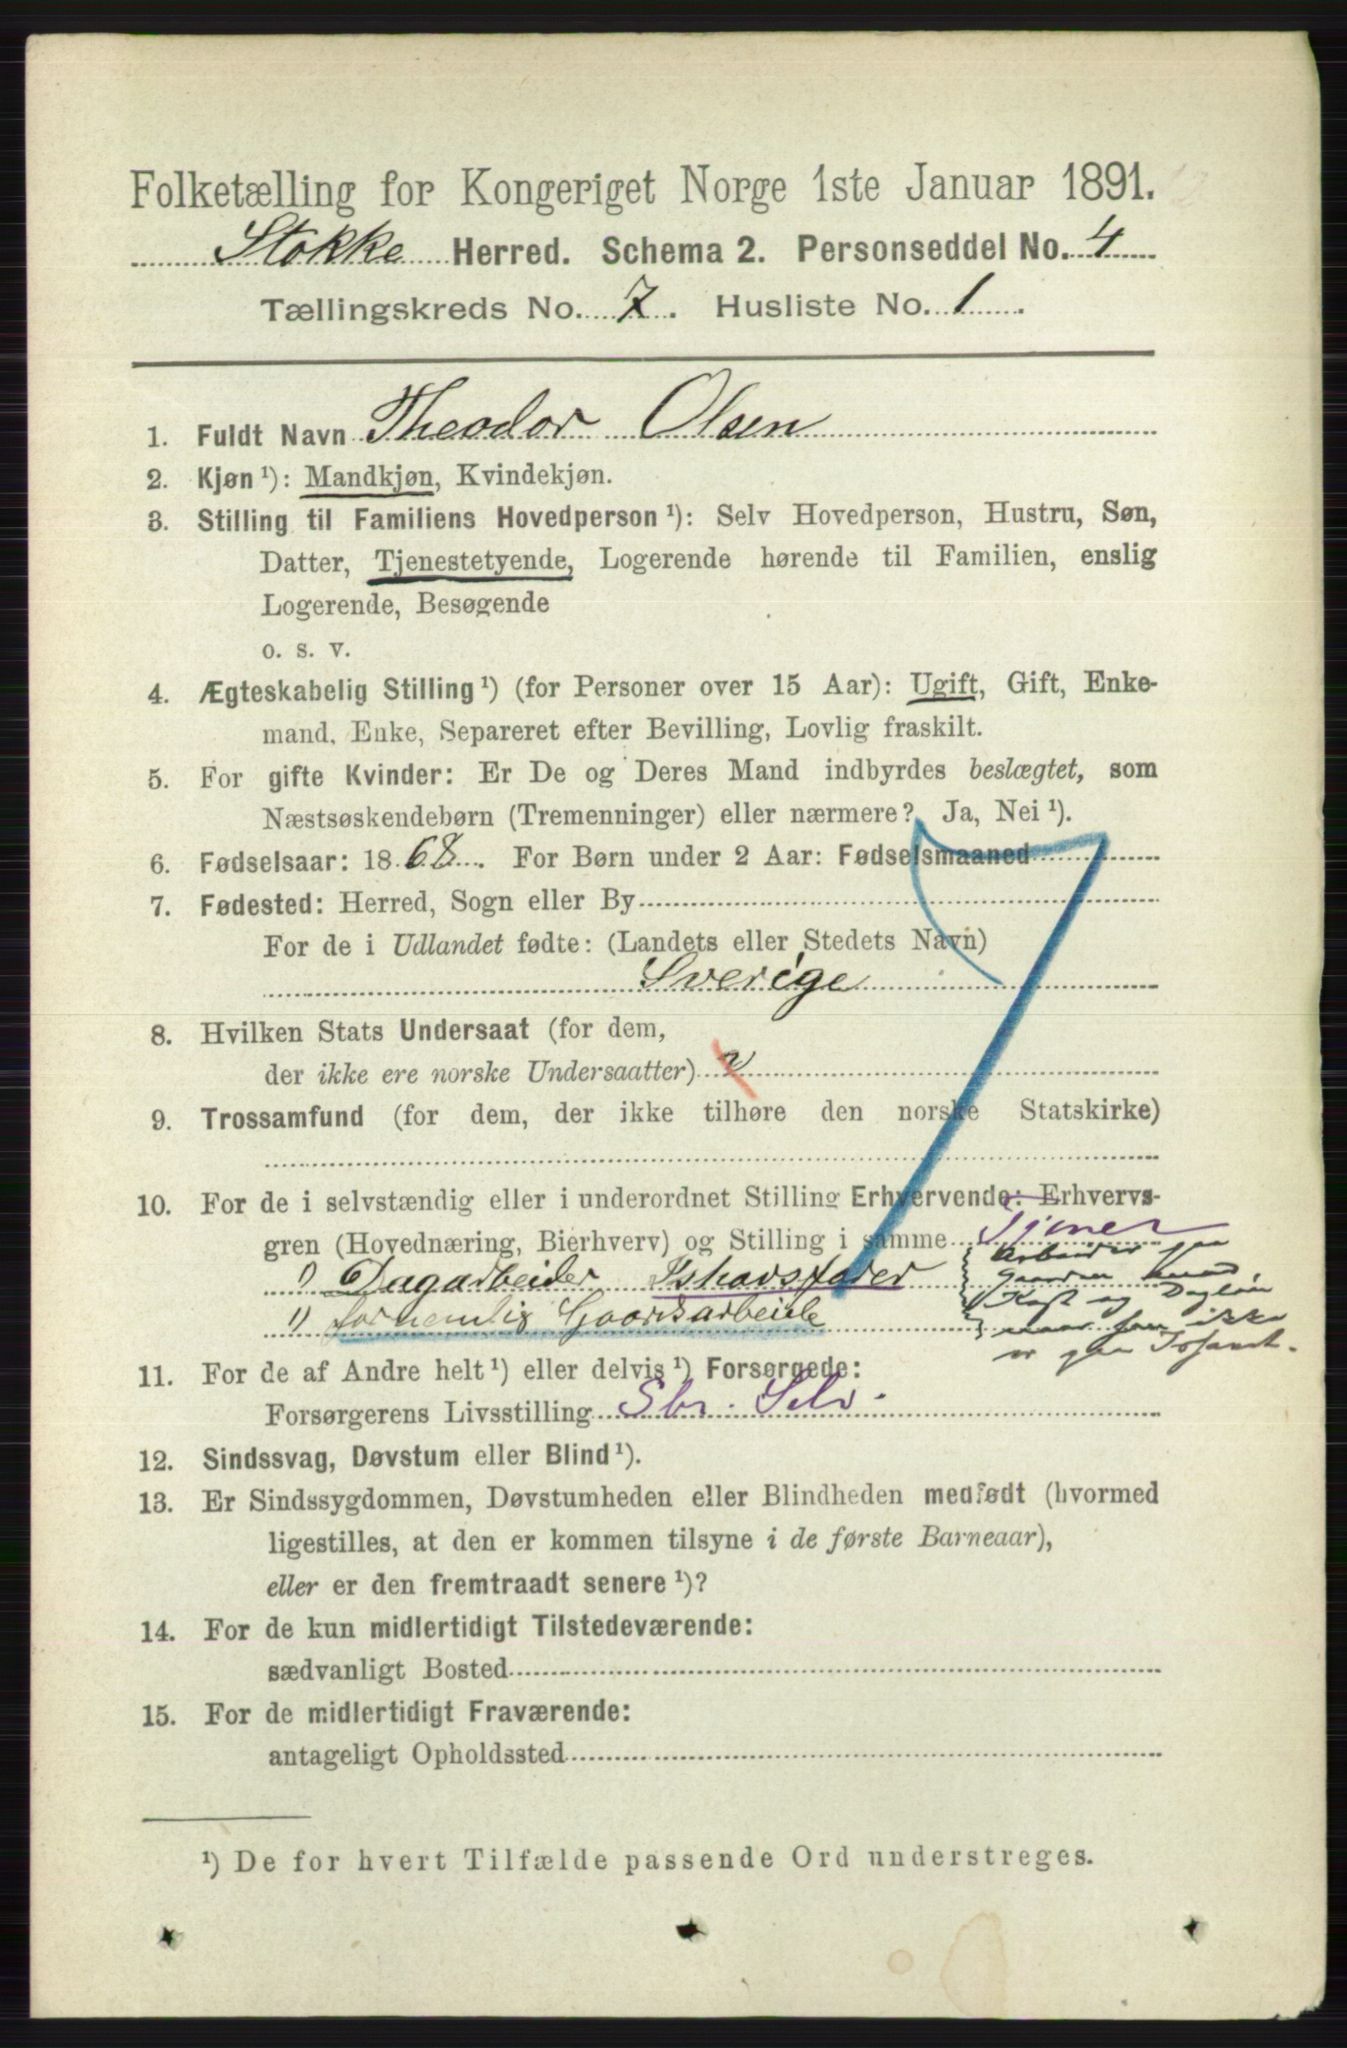 Folketælling for Kongeriget Norge 1ste Januar 1891.
Stokke Herred. Schema 2. Personseddel No. 4
Tællingskreds No. 7. Husliste No. 1
1. Fuldt Navn Theodor Olsen
2. Kjøn ¹): Mandkjøn, Kvindekjøn.
3. Stilling til Familiens Hovedperson ¹): Selv Hovedperson, Hustru, Søn,
Datter, Tjenestetyende, Logerende hørende til Familien, enslig
Logerende, Besøgende
o. s. v.
4. Ægteskabelig Stilling ¹) (for Personer over 15 Aar): Ugift, Gift, Enke-
mand, Enke, Separeret efter Bevilling, Lovlig fraskilt.
5. For gifte Kvinder: Er De og Deres Mand indbyrdes beslægtet, som
Næstsøskendebørn (Tremenninger) eller nærmere? Ja, Nei ¹).
6. Fødselsaar: 1868. For Børn under 2 Aar: Fødselsmaaned
7. Fødested: Herred, Sogn eller By
For de i Udlandet fødte: (Landets eller Stedets Navn)
Sverige
8. Hvilken Stats Undersaat (for dem,
der ikke ere norske Undersaatter) n
9. Trossamfund (for dem, der ikke tilhøre den norske Statskirke)
10. For de i selvstændig eller i underordnet Stilling Erhvervende: Erhvervs-
gren (Hovednæring, Bierhverv) og Stilling i samme Tjener
1) Dagarbeider Ishavsfarer
1) fornemlig Gaardsarbeide
Arbeider paa
Gaarden mod
Kost og Dagløn
naar han ikke
er paa Ishavet.
11. For de af Andre helt ¹) eller delvis ¹) Forsørgede:
Forsørgerens Livsstilling Sbr. Selv.
12. Sindssvag, Døvstum eller Blind ¹).
13. Er Sindssygdommen, Døvstumheden eller Blindheden medfødt (hvormed
ligestilles, at den er kommen tilsyne i de første Barneaar),
eller er den fremtraadt senere ¹)?
14. For de kun midlertidigt Tilstedeværende:
sædvanligt Bosted
15. For de midlertidigt Fraværende:
antageligt Opholdssted
¹) De for hvert Tilfælde passende Ord understreges.